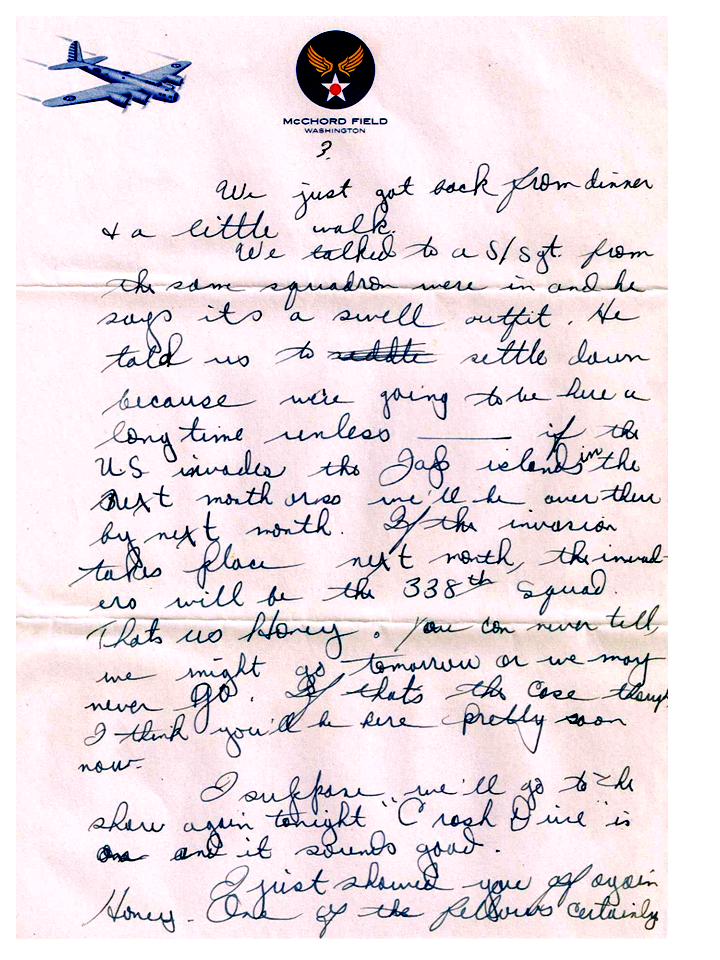 McCHORD FIELD
WASHINGTON
3.
We just got back from dinner
& a little walk.
We talked to a S/Sgt. from
the same squadron were in and he
says its a swell outfit. He
told us to settle down
because we're going to be here a
long time unless ——— if the
U.S invades the Jap islands in the
next month or so we'll be over there
by next month. If the invasion
takes place next month, the invad-
ers will be the 338th squad.
Thats us Honey. You can never tell,
we might go tomorrow or we may
never go. If thats the case though
I think you'll be here pretty soon
now.
I suppose we'll go to the
show again tonight "Crash Dive" is
on and it sounds good.
I just showed you off again
Honey. One of the fellows certainly